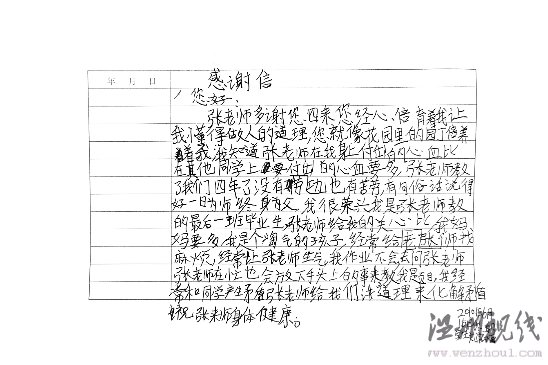 感谢信
年 月 日
您好:
张老师多谢您四来您经心倍育着我让
我懂得做人的道理您就像花园里的园丁倍养
着我我知道张老师在我身上付出的心血比
在其他同学上付出的心血要多张老师教
了我们四年了没有功也有苦有句俗话说得
好一日为师终身为父我很荣兴我是张老师教
的最后一班毕业生张老师给我的关心比我妈
妈要多我是个淘气的孩子经常给张老师找
麻烦经常让张老师生气我作业不会去问张老师
张老师在忙也会放下手头上的事来教我是自我经
常和同学产生矛盾张老师给我们讲道理来化解矛盾
祝张老师身体健康。
温州视线
www.wenzhou1.com